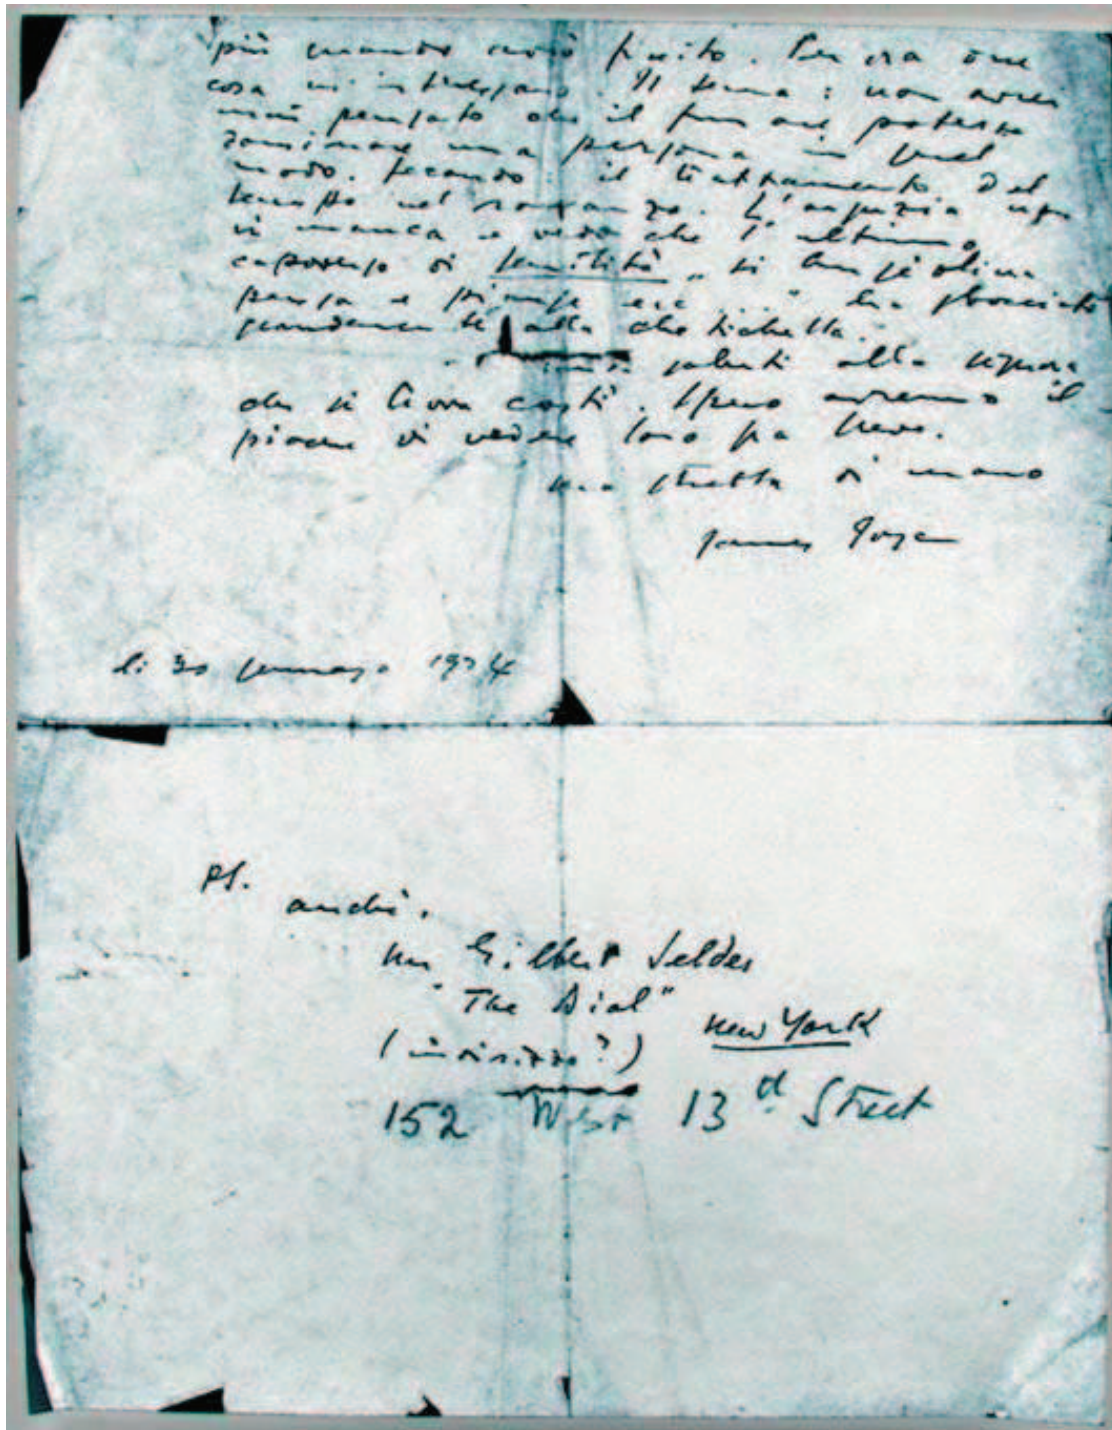 più quando avrò finito. Per ora due
cosa mi interessano. Il tema: non avrei
mai pensato che il fumare potesse
dominare una persona in quel
modo. Secondo: il trattamento del
tempo nel romanzo. L'arguzia non
vi manca e vedo che l'ultimo
capoverso di Senilità "Sì Angiolina
pensa e piange ecc...." ha sbocciato
grandemente alla chetichella.
saluti alla signora
che si trova costì. Spero avremo il
piacere di vedere loro fra breve.
una stretta di mano
James Joyce
li 30 gennaio 1924
PS.
anche.
Mr Gilbert Seldes
"The Dial"
New York
(indirizzo?)
152 West 13d Street